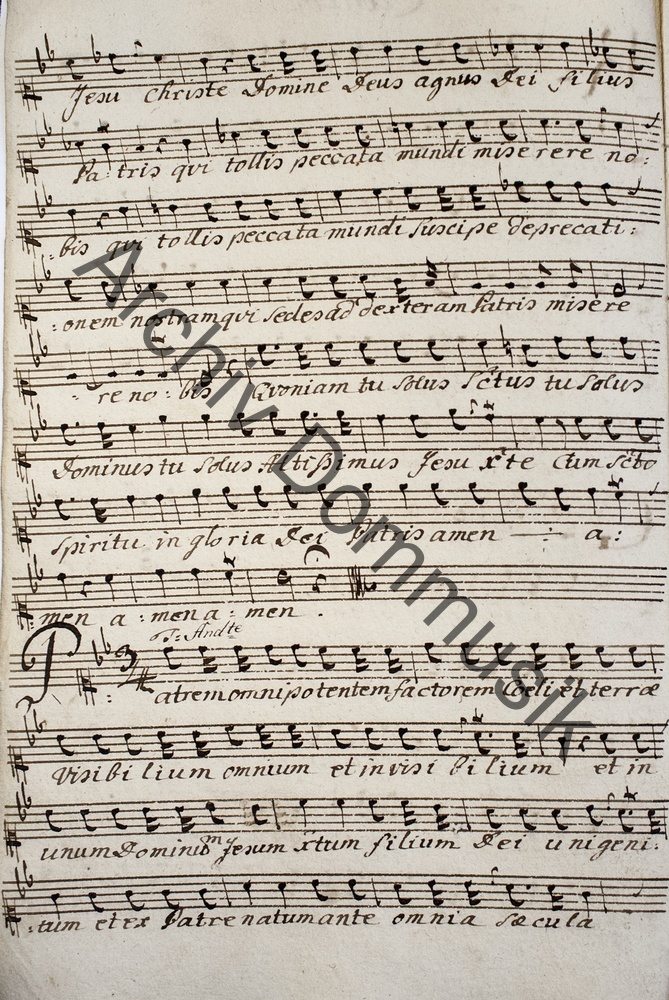 Jesu Christe Domine Deus agnus Dei filius
Pa: tris qui tollis peccata mundi miserere no:
:bis qui tollis peccata mundi suscipe deprecati:
:onem nostram qui sedes ad dexteram Patris misere
re no: bis Quoniam tu solus Sctus tu solus
Dominus tu solus Altissimus Jesu Xte Cum Scto
Spiritu in gloria Dei Patris amen -÷- a:
men a: men a: men.
T: Andte
Patrem omnipotentem factorem Coeli et terræ
visibilium omnium et invisi bilium et in
unum Dominum Jesum Xtum filium Dei unigeni:
:tum et ex Patre natum ante omnia sæcula
Archiv Dommusik